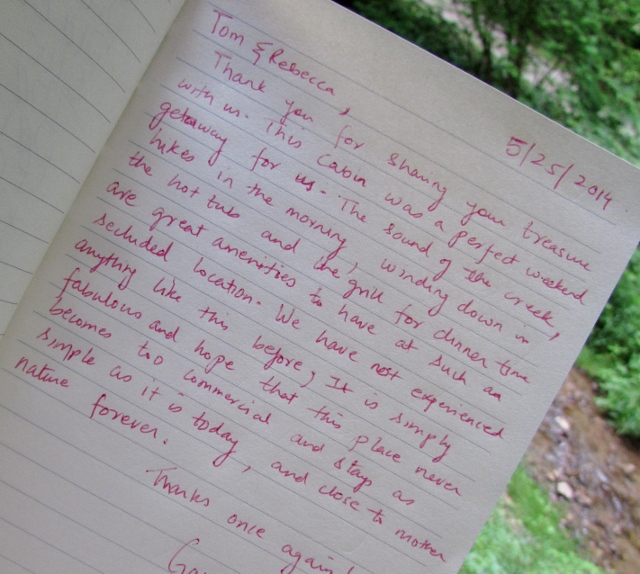 5/25/2014
Tom & Rebecca,
Thank you for sharing your treasure
with us. This Cabin was a perfect weekend
getaway for us. The sound of the creek,
hikes in the morning, winding down in
the hot tub and the grill for dinner time
are great amenities to have at such an
secluded location. We have not experienced
anything like this before, It is simply
fabulous and hope that this place never
becomes too commercial and stay as
simple as it is today, and close to mother
nature forever.
Thanks once again!